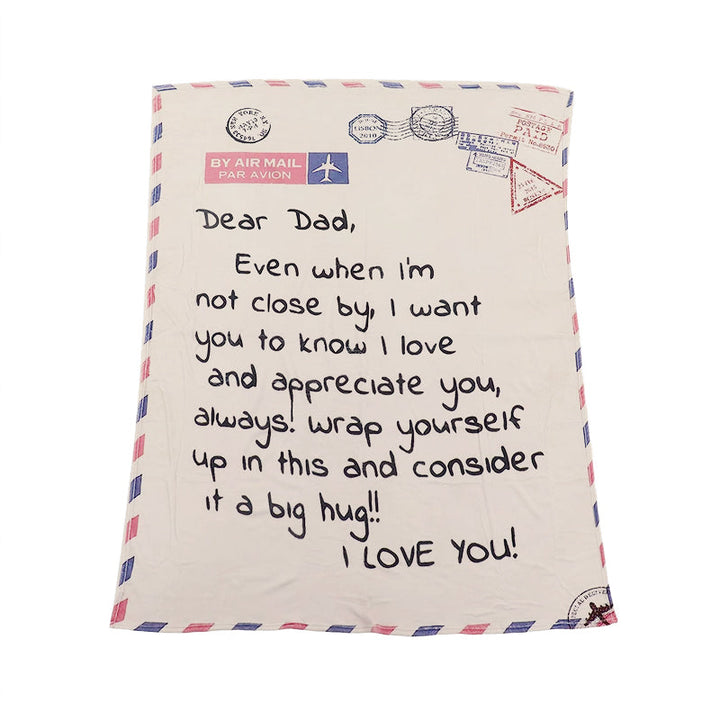 NEW YORK N.Y.
LISBON
2010
POSTAGE
PAID
Permit No.
BY AIR MAIL
PAR AVION
Dear Dad,
Even when i'm
not close by, I want
you to know I love
and appreciate you,
always! wrap yourself
up in this and consider
it a big hug!!
I LOVE YOU!